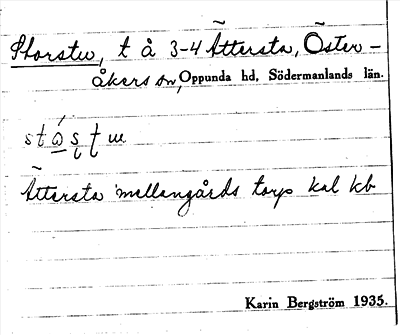 Storstu, t å 3-4 Ättersta, Öster-
Åkers sn, Oppunda hd, Södermanlands län.
Ättersta mellangårds torp kal kb
Karin Bergström 1935.